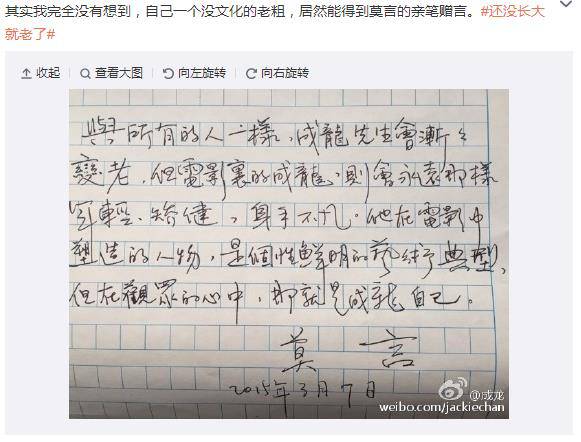 其实我完全没有想到，自己一个没文化的老粗，居然能得到莫言的亲笔赠言。#还没长大
就老了#
收起 查看大图 向左旋转 向右旋转
與所有的人一樣，成龍先生會漸々
變老，但電影裏的成龍，則會永遠那樣
年輕、矯健，身手不凡。他在電影中
塑造的人物，是個性鮮明的藝術典型，
但在觀眾的心中，那就是成龍自己。
莫言
2015年3月7日
@成龙
weibo.com/jackiechan